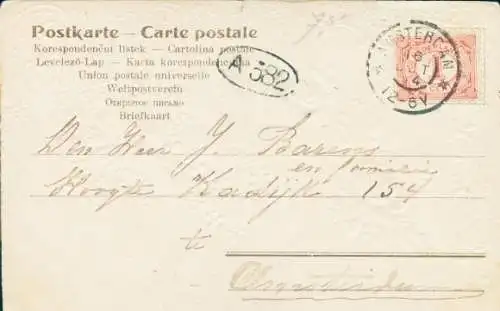 Postkarte — Carte postale
Korespondenčni listek — Cartolina postale
Levelező-Lap — Karta korespondencka
Union postale universelle
Weltpostverein
Открытое письмо
Briefkaart
A 582
AMSTERDAM
12-6V
Den Heer J. Barens
en familie
Hoogte Kadijk 154
te
Amsterdam